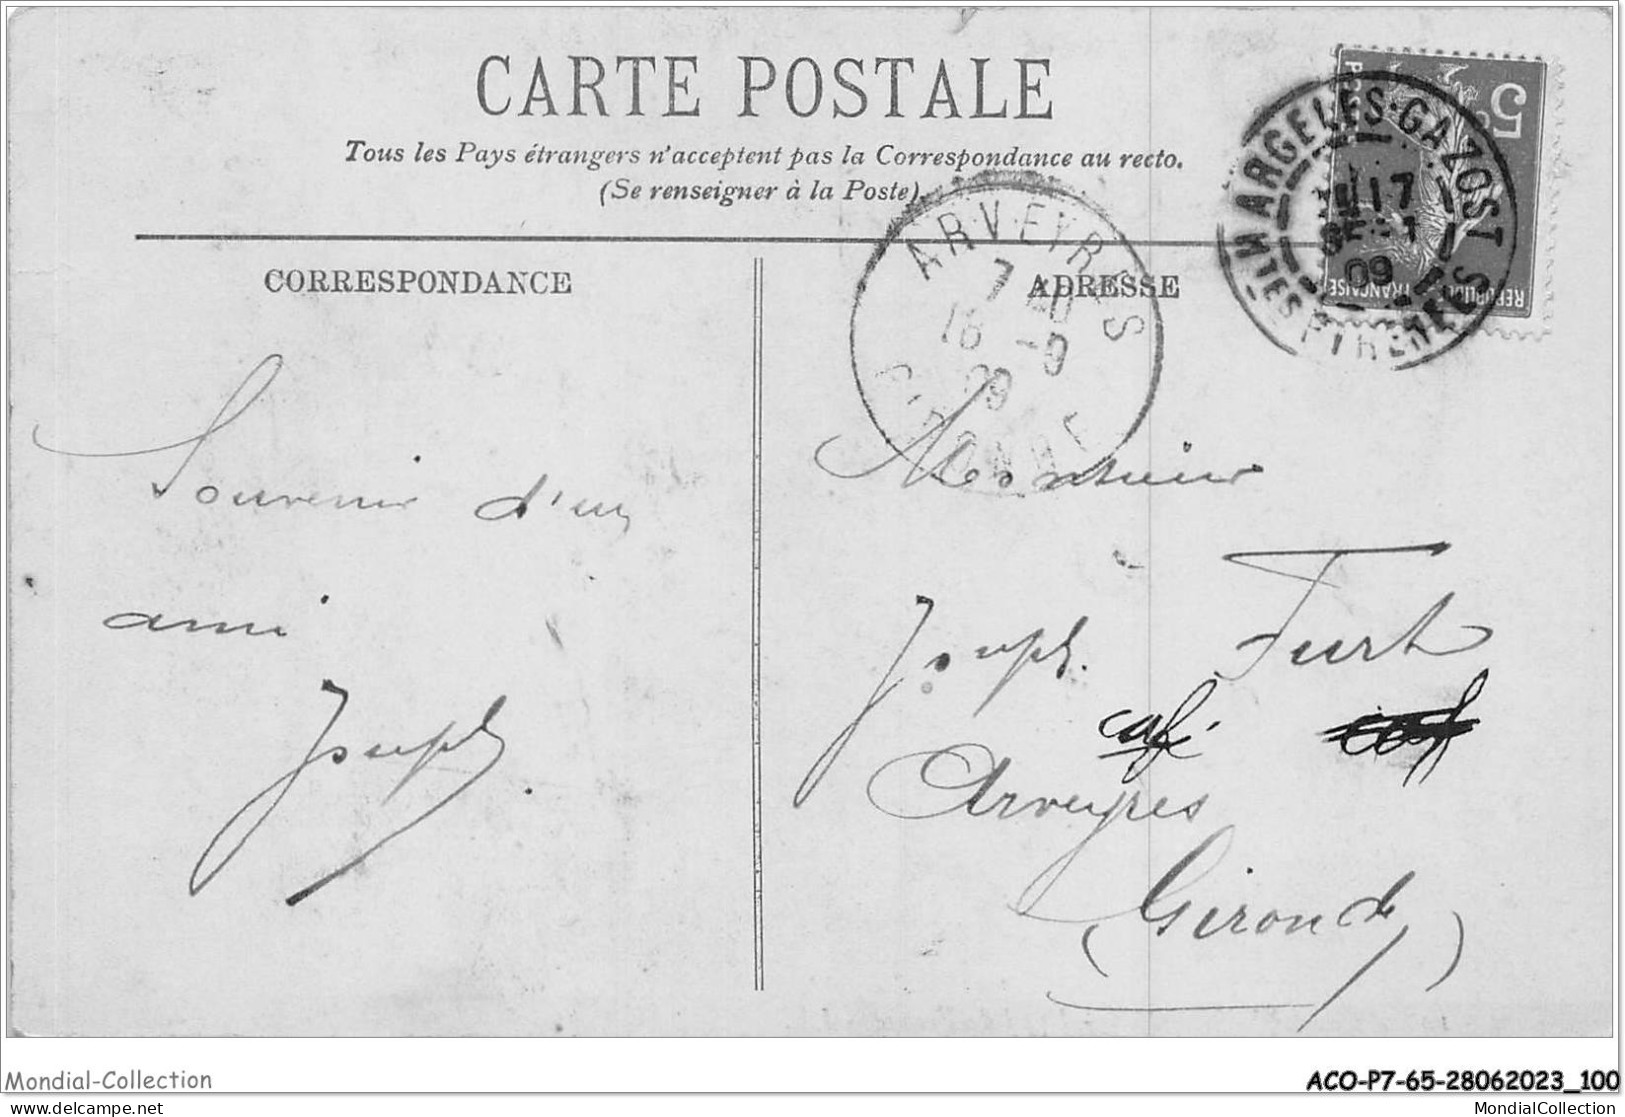 CARTE POSTALE
Tous les Pays étrangers n'acceptent pas la Correspondance au recto.
(Se renseigner à la Poste)
CORRESPONDANCE
ADRESSE
ARGELÈS-GAZOST
17
09
HTES PYRENEES
5c
REPUBLIQUE FRANÇAISE
ARVEYRES
16 -9
09
GIRONDE
Souvenir d'un
ami
Joseph
Monsieur
Joseph Furt
café
Arveyres
(Gironde)
Mondial-Collection
ACO-P7-65-28062023_100
www.delcampe.net
MondialCollection